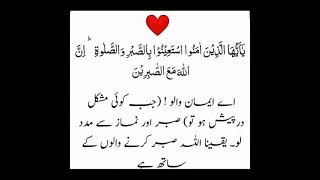 یٰۤاَیُّهَا الَّذِیْنَ اٰمَنُوا اسْتَعِیْنُوْا بِالصَّبْرِ وَ الصَّلٰوةِؕ اِنَّ
اللّٰهَ مَعَ الصّٰبِرِیْنَ
اے ایمان والو ! (جب کوئی مشکل
درپیش ہو تو) صبر اور نماز سے مدد
لو۔ یقینا اللہ صبر کرنے والوں کے
ساتھ ہے